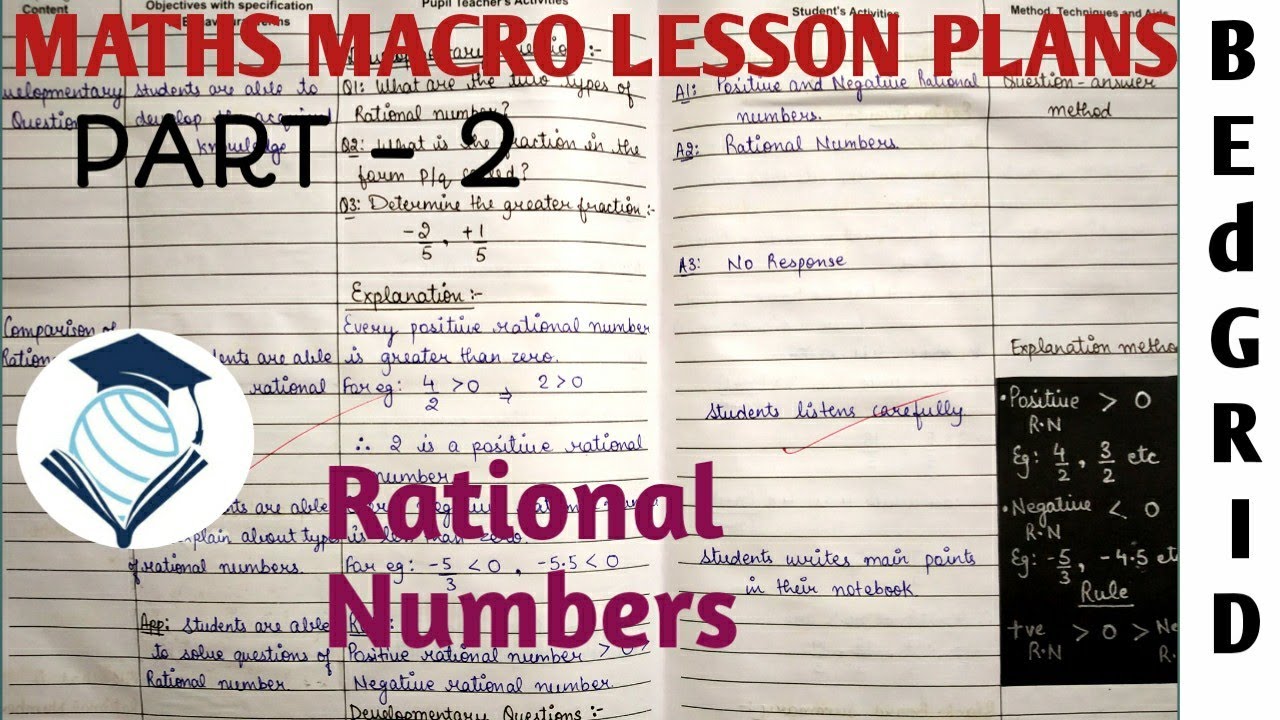 Content
Objectives with specification
Pupil Teacher's Activities
Student's Activities
Method, Techniques and Aids
MATHS MACRO LESSON PLANS
PART - 2
Rational
Numbers
BEdGRID
Question
students are able to
develop the acquired
knowledge
Q1: What are the two types of
Rational number?
Q2: What is the fraction in the
form p/q called?
Q3: Determine the greater fraction:-
-2/5, +1/5
Explanation:-
Comparison of
students are able
rational
Every positive rational number
is greater than zero.
For eg: 4/2 > 0 ⇒ 2 > 0
∴ 2 is a positive rational
number
is less than zero.
For eg: -5/3 < 0, -5.5 < 0
are able
explain about types
of rational numbers.
App: Students are able
to solve questions of
Rational number.
Positive rational number > 0 >
Negative rational number.
Developmentary Questions :-
A1: Positive and Negative Rational
numbers.
A2: Rational Numbers.
A3: No Response
students listens carefully
students writes main points
in their notebook
Question-answer
method
Explanation method
• Positive > 0
R.N
Eg: 4/2, 3/2 etc
• Negative < 0
R.N
Eg: -5/3, -4.5 etc
Rule
+ve > 0 > Ne
R.N R.